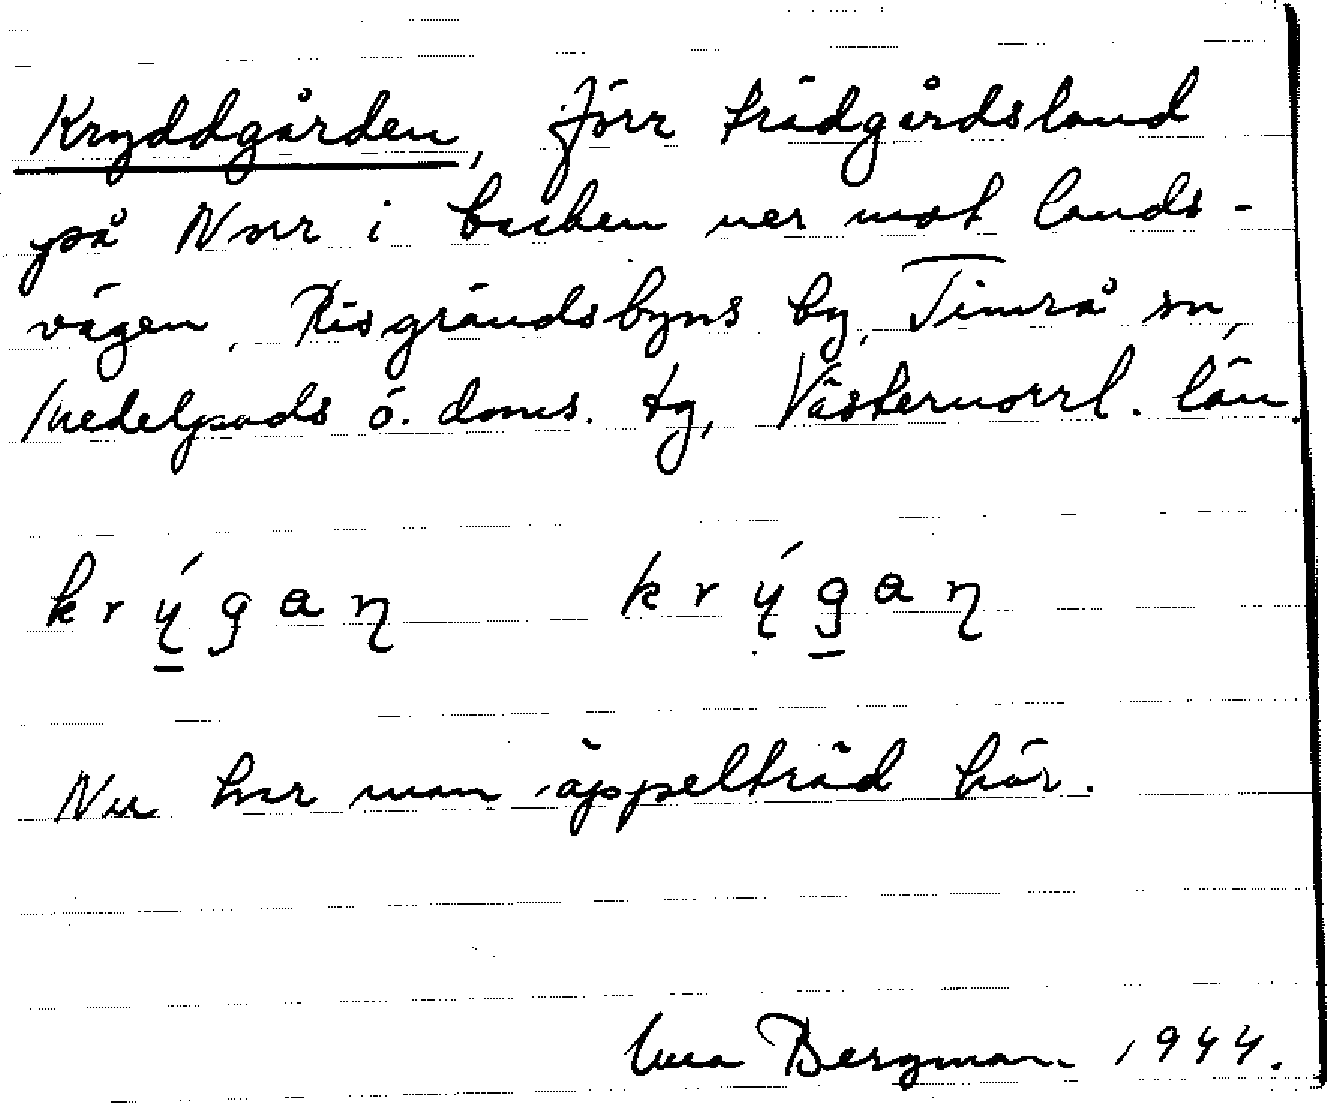 Kryddgården, förr trädgårdsland
på Norr i backen ner mot lands-
vägen, Risgrändsbyns by, Timrå sn,
Medelpads ö. doms. tg, Västernorrl. län.
krýgaŋ krýgaŋ
Nu har man äppelträd här.
Bergman 1944.